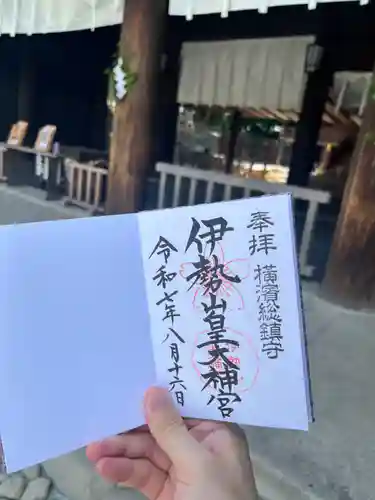 奉拝
横濱総鎮守
伊勢山皇大神宮
令和七年八月十六日